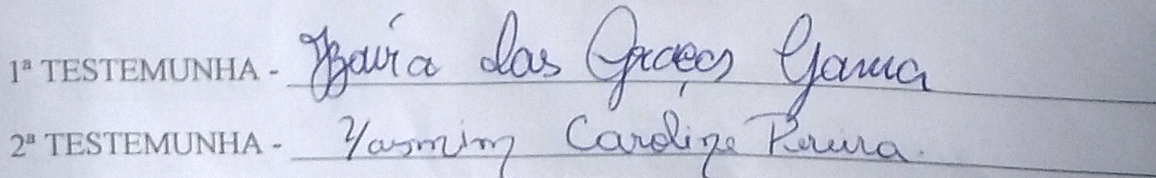 1ª TESTEMUNHA - das Graças Gama
2ª TESTEMUNHA - Yasmim Caroline Pereira.